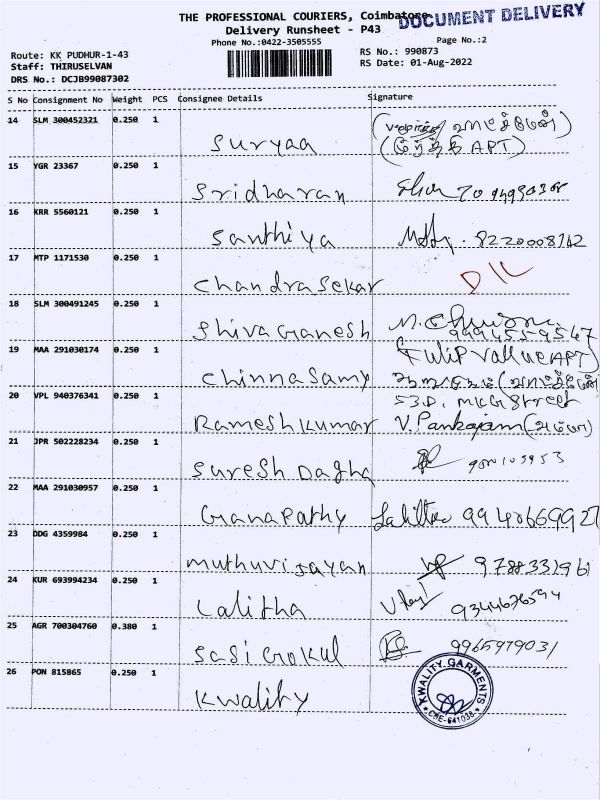 THE PROFESSIONAL COURIERS, Coimbatore
DOCUMENT DELIVERY
Delivery Runsheet - P43
Phone No.:0422-3505555
Page No.:2
Route: KK PUDHUR-1-43
RS No.: 990873
Staff: THIRUSELVAN
RS Date: 01-Aug-2022
DRS No.: DCJB99087302
S No Consignment No Weight PCS Consignee Details Signature
14 SLM 300452321 0.250 1
Suryaa
APT)
15 YGR 23367 0.250 1
Sridharan
16 KRR 5560121 0.250 1
Santhiya 8220008742
17 MTP 1171530 0.250 1
Chandrasekar D/L
18 SLM 300491245 0.250 1
Shiva Ganesh
9994559547
19 MAA 291030174 0.250 1
Chinnasamy
20 VPL 940376341 0.250 1
53D. MKG Street
Rameshkumar V. Pankajam (அம்மா)
21 JPR 502228234 0.250 1
Suresh Dagha
22 MAA 291030957 0.250 1
Ganapathy
23 DDG 4359984 0.250 1
Muthuvijayan 9788331961
24 KUR 693994234 0.250 1
Lalitha 9344676594
25 AGR 700304760 0.380 1
Sasi Gokul 9965979031
26 PON 815865 0.250 1
Kwality
KWALITY GARMENTS
CBE-641038